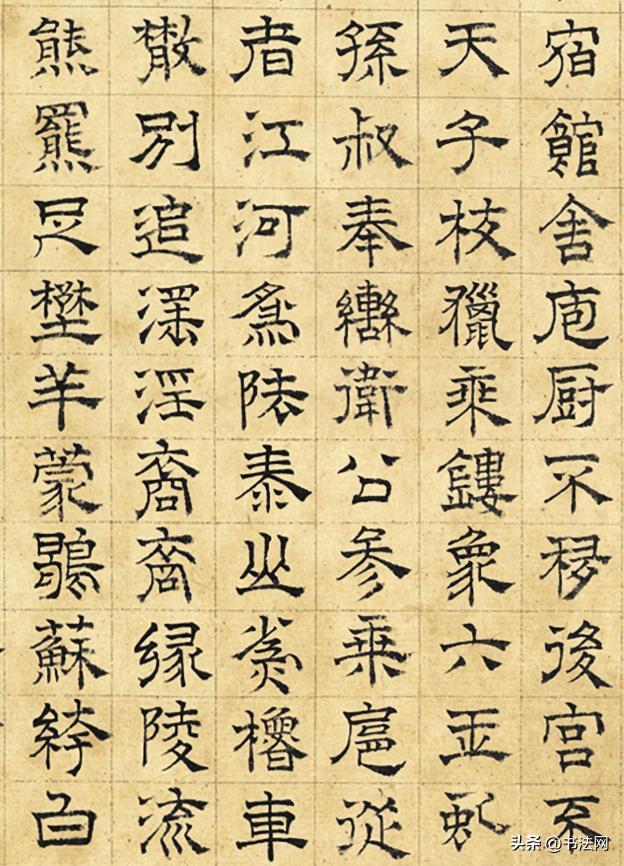 宿館舍庖厨不移後宮不
天子枝獵乘鏤象六玉虬
孫叔奉轡衛公参乘扈從
者江河為阹泰山為櫓車
散別追淫淫裔裔緣陵流
熊羆足壄羊蒙鶡蘇絝白
头条 @书法网